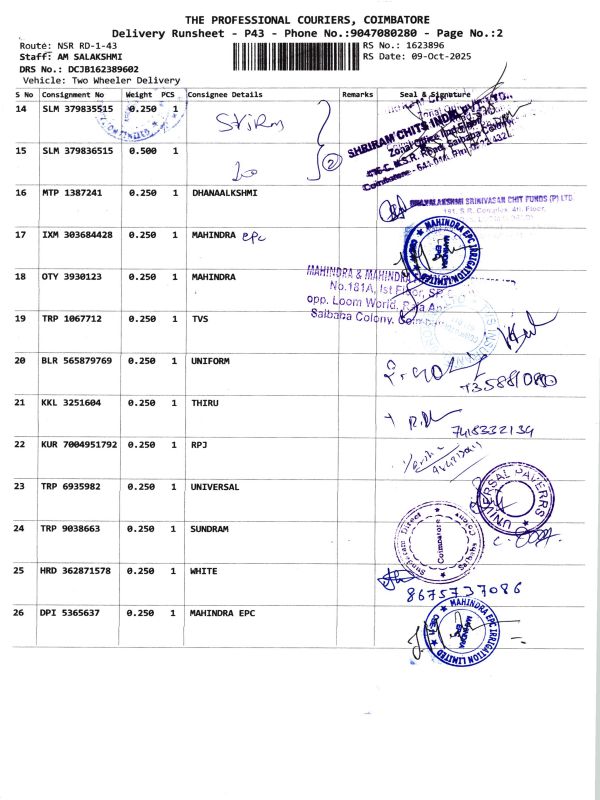 THE PROFESSIONAL COURIERS, COIMBATORE
Delivery Runsheet - P43 - Phone No.:9047080280 - Page No.:2
Route: NSR RD-1-43 RS No.: 1623896
Staff: AM SALAKSHMI RS Date: 09-Oct-2025
DRS No.: DCJB162389602
Vehicle: Two Wheeler Delivery
S No Consignment No Weight PCS Consignee Details Remarks Seal & Signature
14 SLM 379835515 0.250 1 Sriram
SHRIRAM CHITS INDIA PVT. LTD.
Zonal Office
15 SLM 379836515 0.500 1 2
16 MTP 1387241 0.250 1 DHANAALKSHMI
SRINIVASAN CHIT FUNDS (P) LTD
17 IXM 303684428 0.250 1 MAHINDRA epc
MAHINDRA EPC IRRIGATION LIMITED
18 OTY 3930123 0.250 1 MAHINDRA
MAHINDRA & MAHINDRA
No.181A, Ist Floor,
opp. Loom World,
Saibaba Colony,
19 TRP 1067712 0.250 1 TVS
20 BLR 565879769 0.250 1 UNIFORM
21 KKL 3251604 0.250 1 THIRU
7418332134
22 KUR 7004951792 0.250 1 RPJ
23 TRP 6935982 0.250 1 UNIVERSAL
UNIVERSAL PAVERRS
24 TRP 9038663 0.250 1 SUNDRAM
Sundram Direct
Coimbatore
25 HRD 362871578 0.250 1 WHITE
8675737086
26 DPI 5365637 0.250 1 MAHINDRA EPC
MAHINDRA EPC IRRIGATION LIMITED